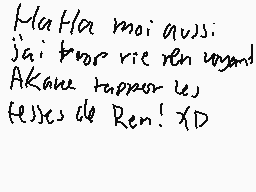 HaHa moi aussi
j'ai trop rie ren voyant
Akane tapper les
fesses de Ren! XD